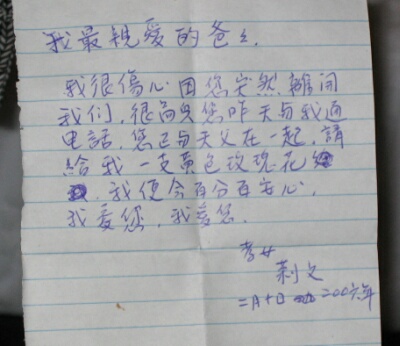 我最親愛的爸々.
我很傷心因您突然離開
我们,很高興您昨天与我通
電話,您已与天父在一起,請
給我一支黃色玫瑰花
,我便会百分百安心,
我愛您,我愛您.
孝女
二月十日 二00六年